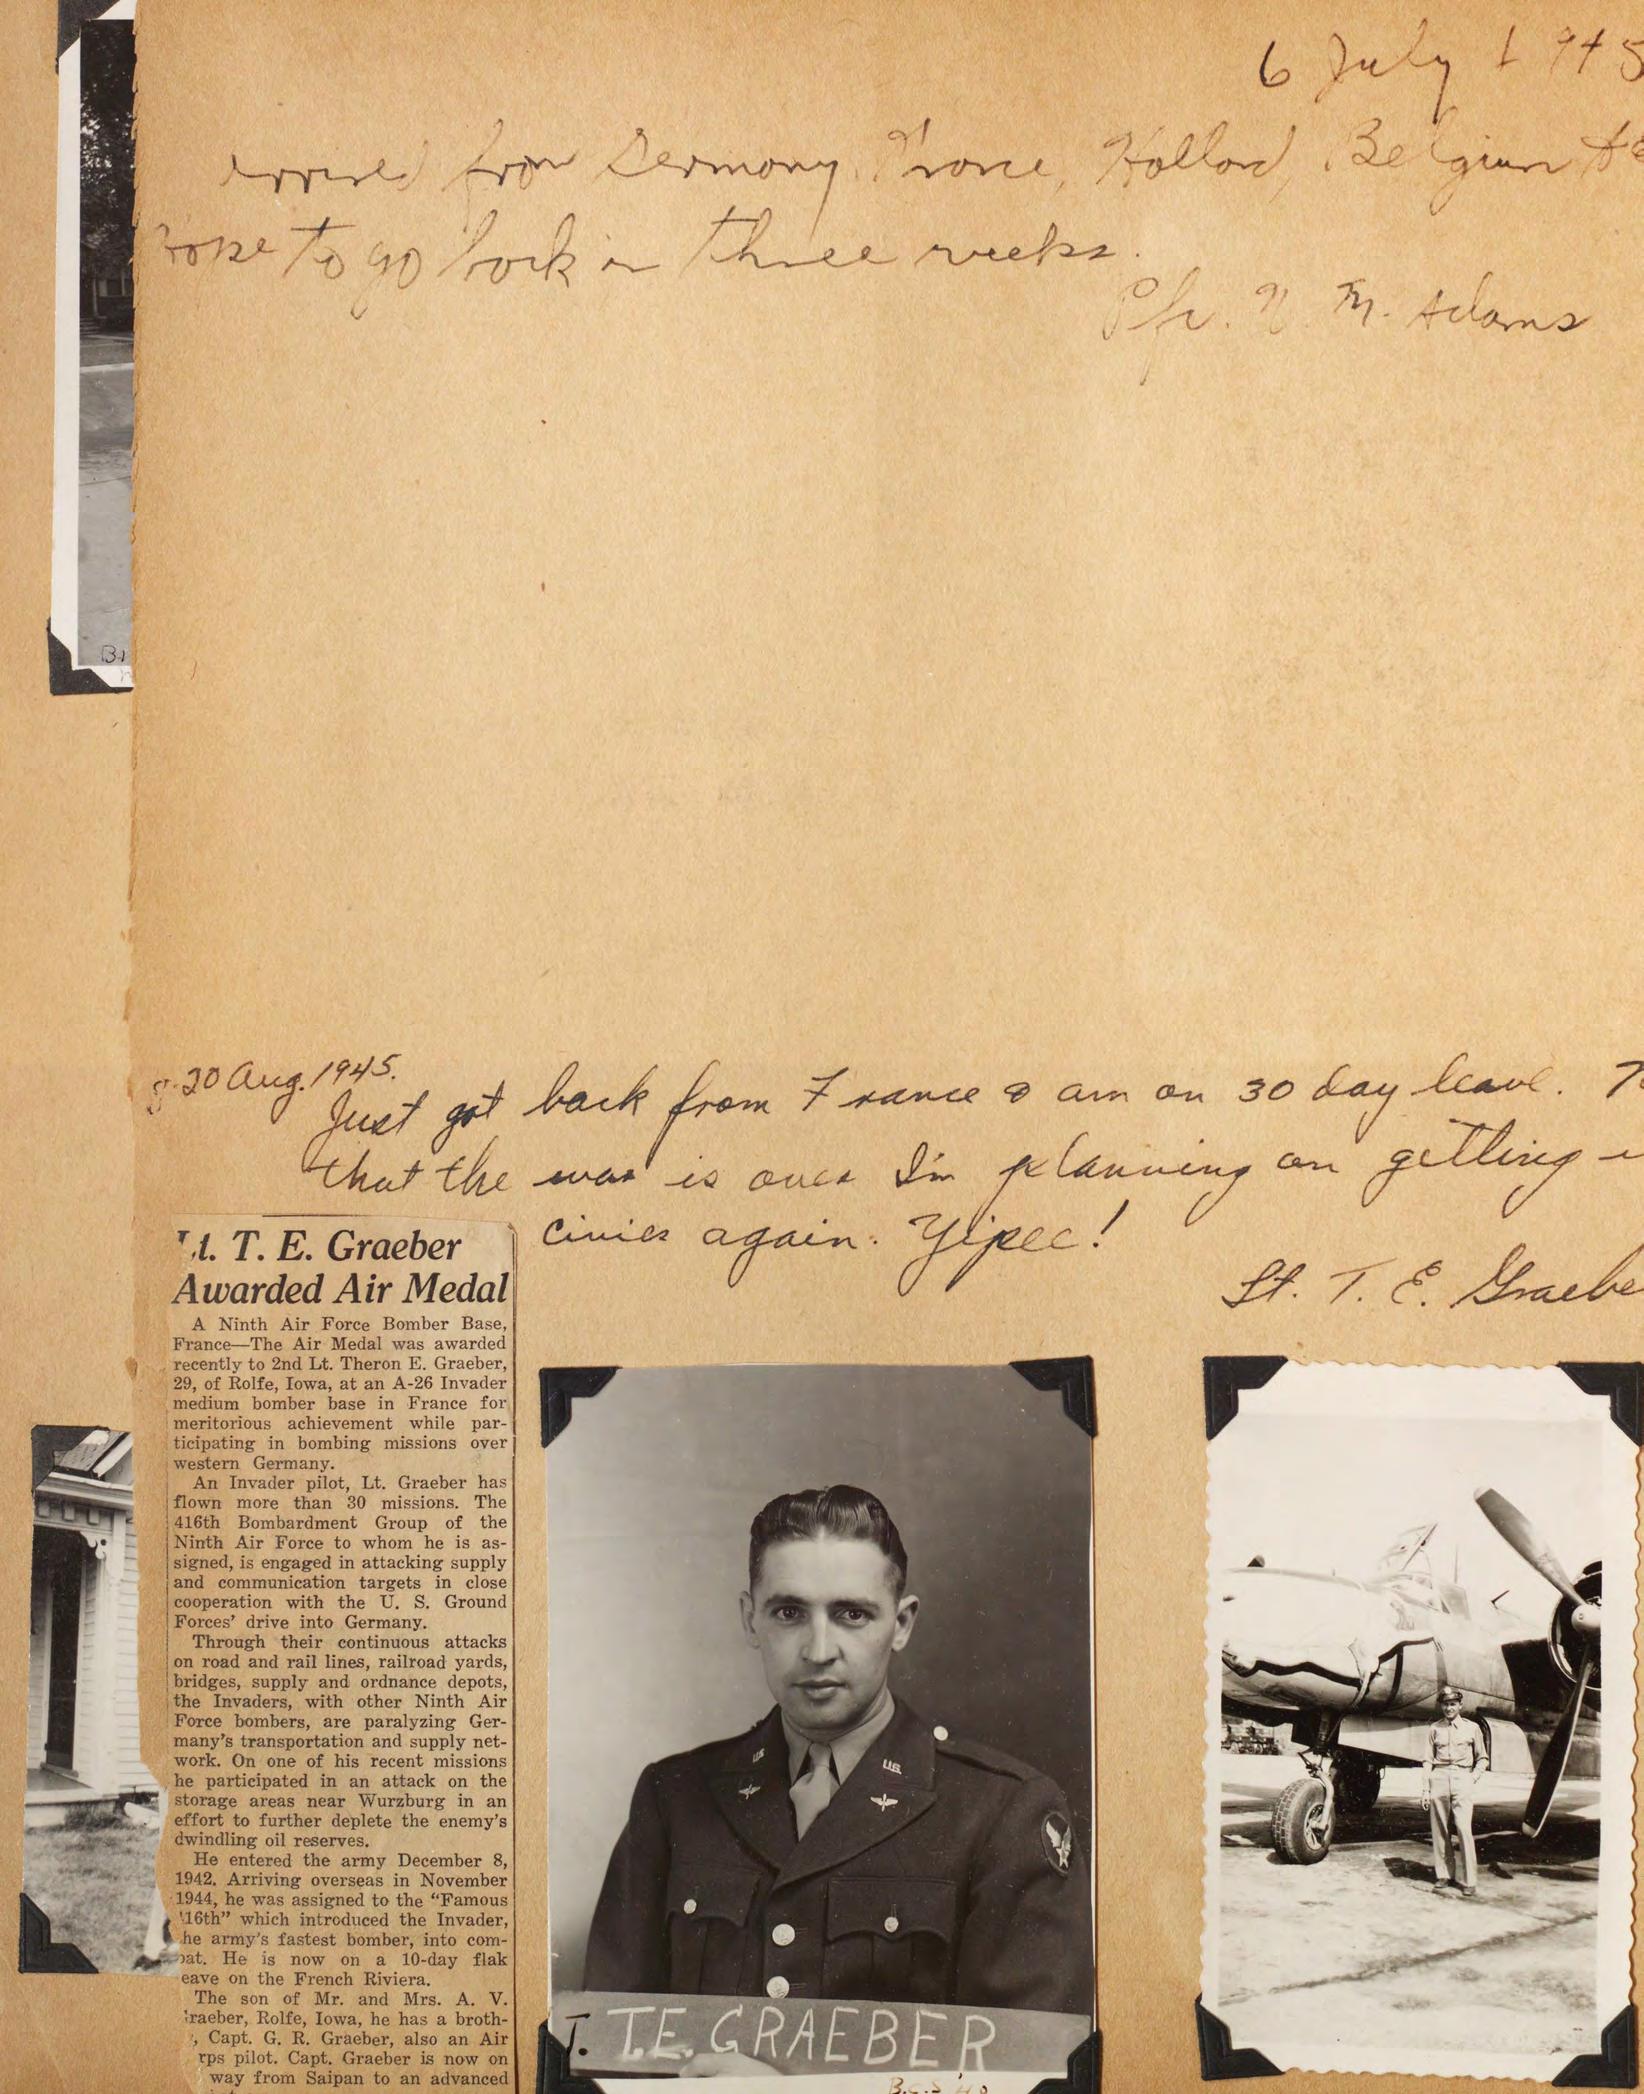 6 July 1945
arrived from Germany, France, Holland, Belgium
to go back in three weeks.
Pfc. M. Adams
20 Aug. 1945.
Just got back from France & am on 30 day leave.
that the war is over I'm planning on getting
civies again. Yipee!
Lt. T. E. Graebe
Lt. T. E. Graeber
Awarded Air Medal
A Ninth Air Force Bomber Base,
France—The Air Medal was awarded
recently to 2nd Lt. Theron E. Graeber,
29, of Rolfe, Iowa, at an A-26 Invader
medium bomber base in France for
meritorious achievement while par-
ticipating in bombing missions over
western Germany.
An Invader pilot, Lt. Graeber has
flown more than 30 missions. The
416th Bombardment Group of the
Ninth Air Force to whom he is as-
signed, is engaged in attacking supply
and communication targets in close
cooperation with the U. S. Ground
Forces' drive into Germany.
Through their continuous attacks
on road and rail lines, railroad yards,
bridges, supply and ordnance depots,
the Invaders, with other Ninth Air
Force bombers, are paralyzing Ger-
many's transportation and supply net-
work. On one of his recent missions
he participated in an attack on the
storage areas near Wurzburg in an
effort to further deplete the enemy's
dwindling oil reserves.
He entered the army December 8,
1942. Arriving overseas in November
1944, he was assigned to the "Famous
'16th" which introduced the Invader,
he army's fastest bomber, into com-
bat. He is now on a 10-day flak
eave on the French Riviera.
The son of Mr. and Mrs. A. V.
raeber, Rolfe, Iowa, he has a broth-
, Capt. G. R. Graeber, also an Air
rps pilot. Capt. Graeber is now on
way from Saipan to an advanced
U.S.
T. T.E. GRAEBER